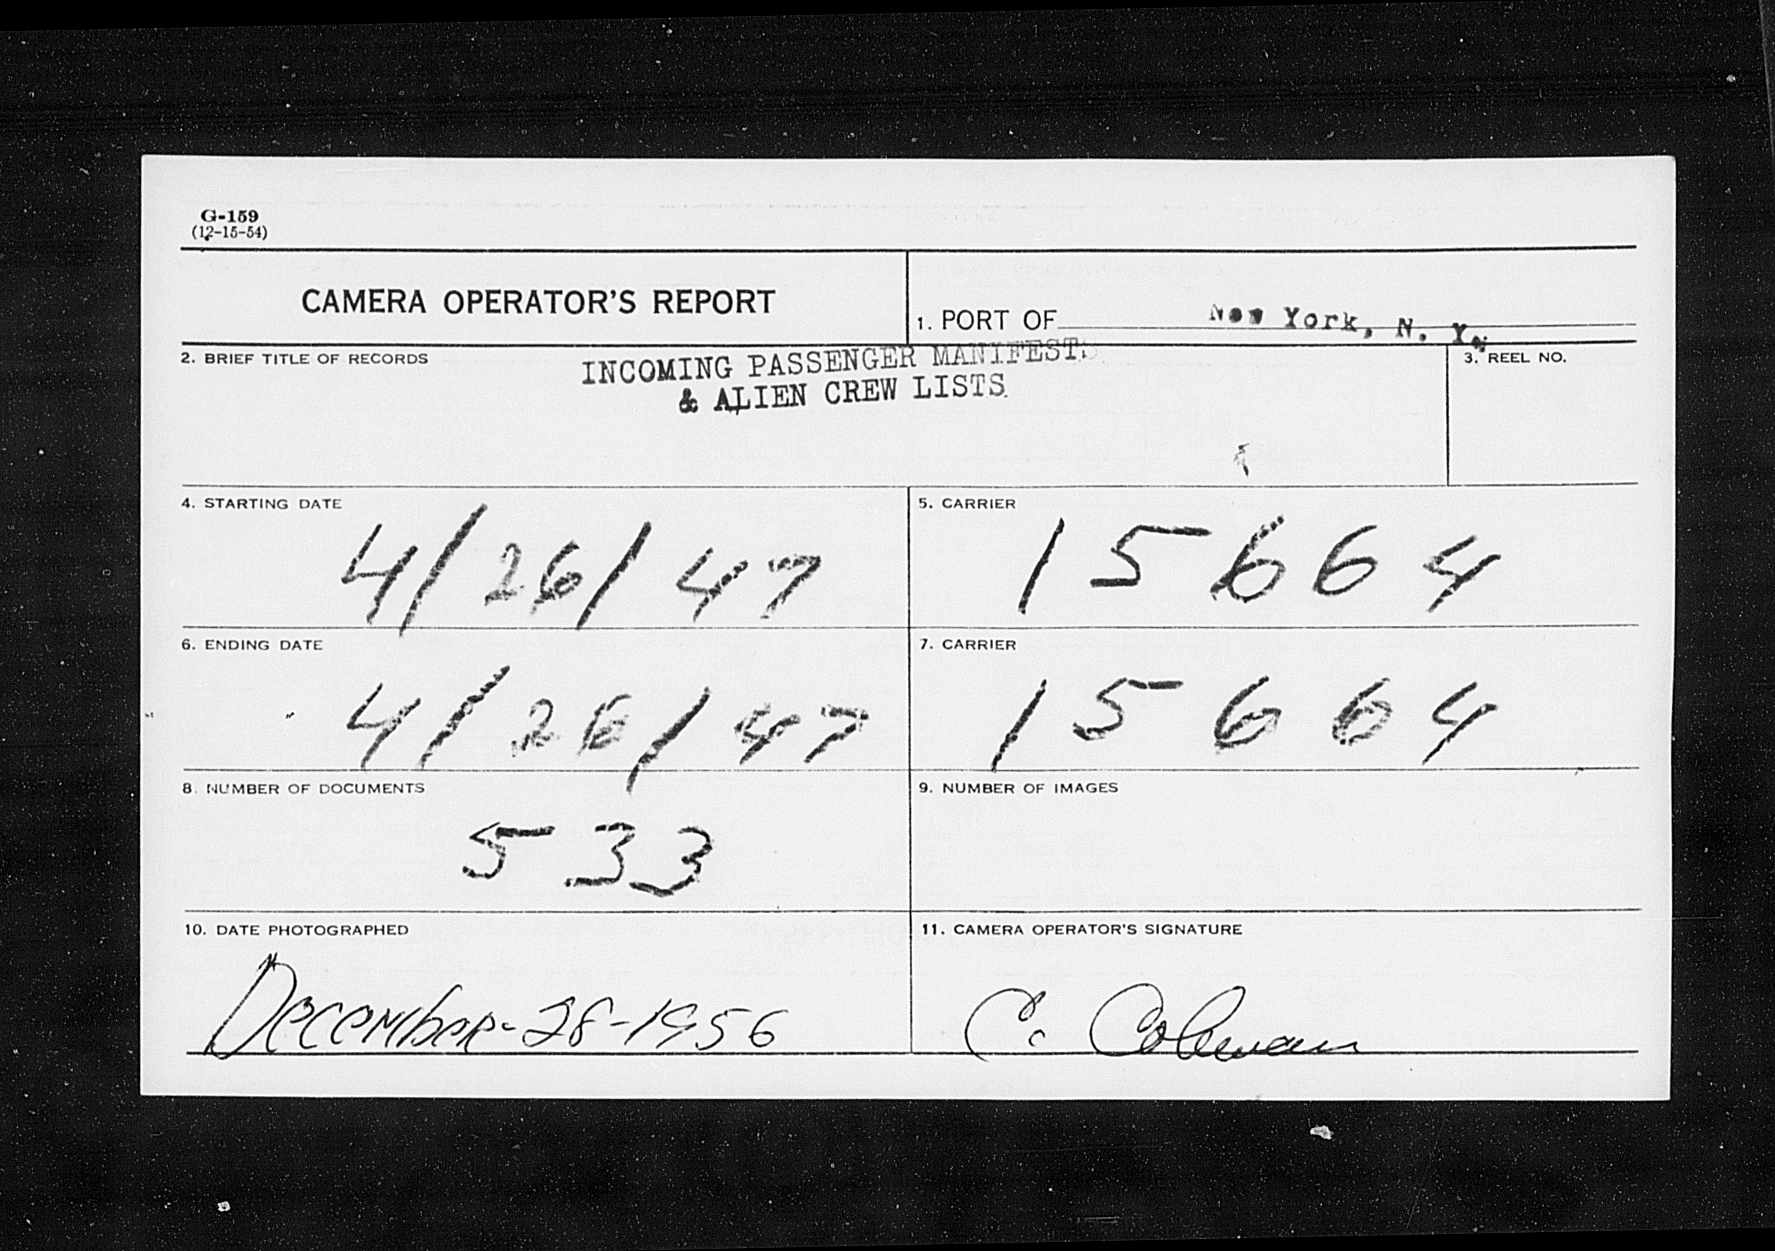 G-159
(12-15-54)
CAMERA OPERATOR'S REPORT
1. PORT OF New York, N. Y.
2. BRIEF TITLE OF RECORDS
INCOMING PASSENGER MANIFESTS
& ALIEN CREW LISTS
3. REEL NO.
4. STARTING DATE
4/26/47
5. CARRIER
15664
6. ENDING DATE
4/26/47
7. CARRIER
15664
8. NUMBER OF DOCUMENTS
533
9. NUMBER OF IMAGES
10. DATE PHOTOGRAPHED
December-28-1956
11. CAMERA OPERATOR'S SIGNATURE
C. Coleman